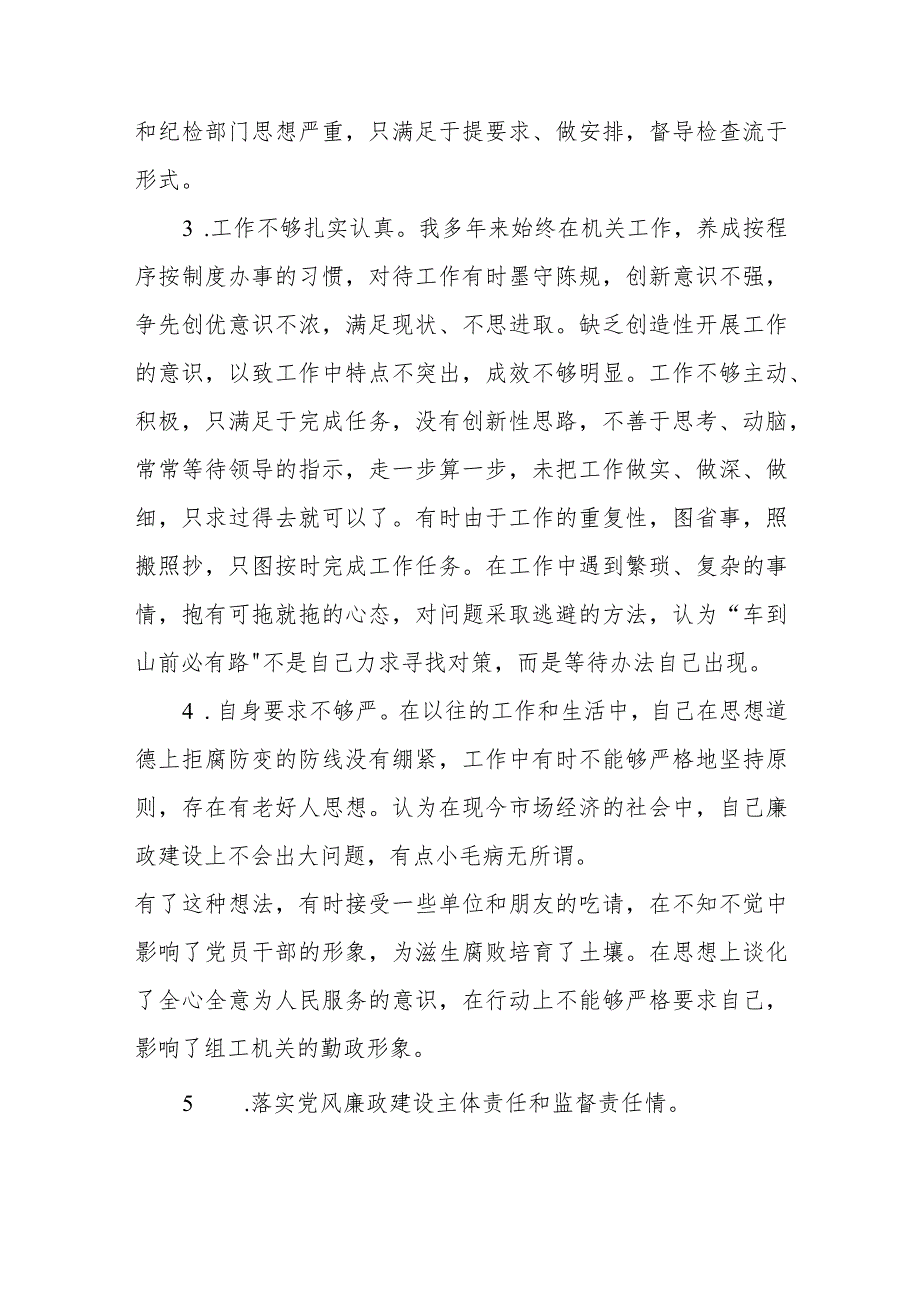 和纪检部门思想严重，只满足于提要求、做安排，督导检查流于
形式。
3 .工作不够扎实认真。我多年来始终在机关工作，养成按程
序按制度办事的习惯，对待工作有时墨守陈规，创新意识不强，
争先创优意识不浓，满足现状、不思进取。缺乏创造性开展工作
的意识，以致工作中特点不突出，成效不够明显。工作不够主动、
积极，只满足于完成任务，没有创新性思路，不善于思考、动脑，
常常等待领导的指示，走一步算一步，未把工作做实、做深、做
细，只求过得去就可以了。有时由于工作的重复性，图省事，照
搬照抄，只图按时完成工作任务。在工作中遇到繁琐、复杂的事
情，抱有可拖就拖的心态，对问题采取逃避的方法，认为“车到
山前必有路"不是自己力求寻找对策，而是等待办法自己出现。
4 .自身要求不够严。在以往的工作和生活中，自己在思想道
德上拒腐防变的防线没有绷紧，工作中有时不能够严格地坚持原
则，存在有老好人思想。认为在现今市场经济的社会中，自己廉
政建设上不会出大问题，有点小毛病无所谓。
有了这种想法，有时接受一些单位和朋友的吃请，在不知不觉中
影响了党员干部的形象，为滋生腐败培育了土壤。在思想上谈化
了全心全意为人民服务的意识，在行动上不能够严格要求自己，
影响了组工机关的勤政形象。
5 .落实党风廉政建设主体责任和监督责任情。